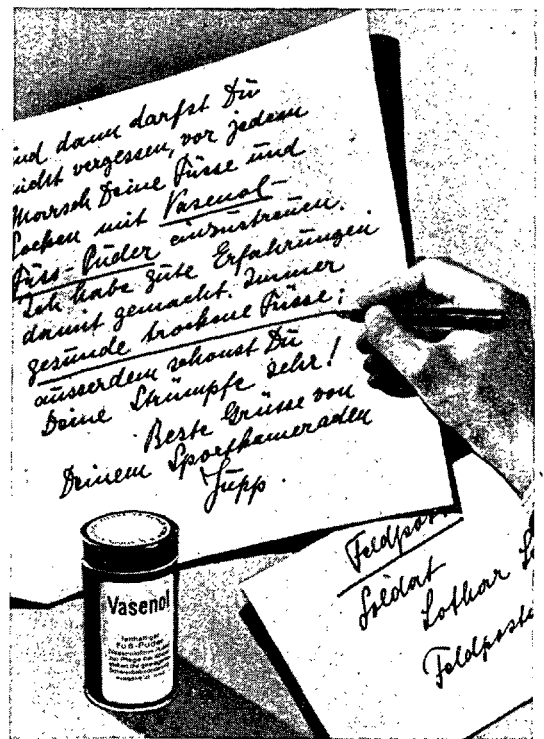 und dann darfst Du
nicht vergessen, vor jedem
Marsch Deine Füsse und
Socken mit Vasenol-
Fuss-Puder einzustreuen.
Ich habe gute Erfahrungen
damit gemacht. Immer
gesunde trockene Füsse;
ausserdem schonst Du
Deine Strümpfe sehr!
Beste Grüsse von
Deinem Sportkameraden
Jupp.
Vasenol
Fuß-Puder
Feldpost
Soldat
Lothar
Feldpost